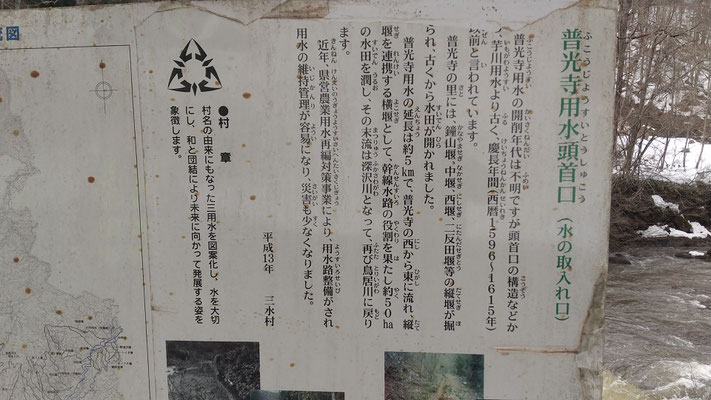 普光寺用水頭首口（水の取入れ口）
普光寺用水の開削年代は不明ですが頭首口の構造などか
、芋川用水より古く、慶長年間（西暦1596〜1615年）
以前と言われています。
普光寺の里には、鐘山堰、中堰、西堰、二反田堰等の縦堰が掘
られ、古くから水田が開かれました。
普光寺用水の延長は約5kmで、普光寺の西から東に流れ、縦
堰を連携する横堰として、幹線水路の役割を果たし約50ha
の水田を潤し、その末流は深沢川となって、再び鳥居川に戻り
ます。
近年、県営農業用水再編対策事業により、用水路整備がされ
用水の維持管理が容易になり、災害も少なくなりました。
平成13年　三水村
●村　章
村名の由来にもなった三用水を図案化し、水を大切
にし、和と団結により未来に向かって発展する姿を
象徴します。
図